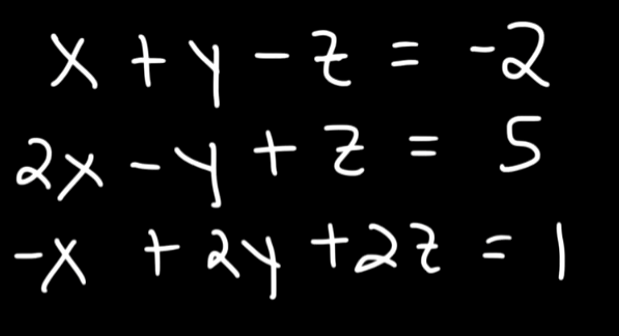 x + y - z = -2
2x - y + z = 5
-x + 2y + 2z = 1